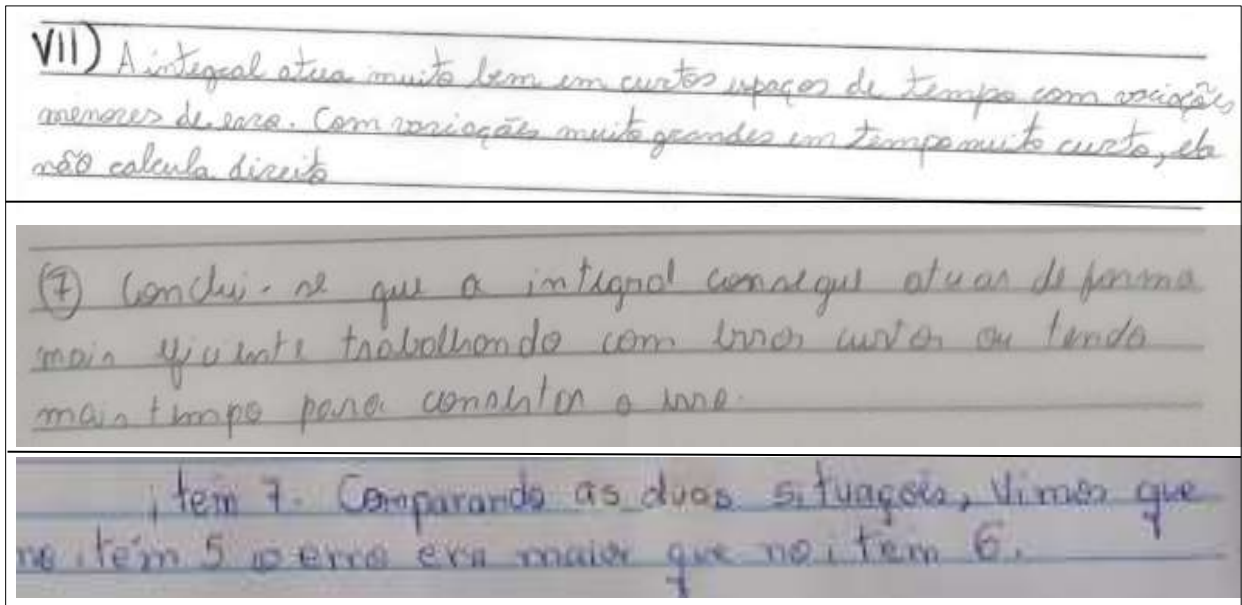 VII) A integral atua muito bem em curtos espaços de tempo com variações
menores de erro. Com variações muito grandes em tempo muito curto, ela
não calcula direito
(7) Conclui-se que a integral consegue atuar de forma
mais eficiente trabalhando com erros curtos ou tendo
mais tempo para consertar o erro.
item 7. Comparando as duas situações, vimos que
no item 5 o erro era maior que no item 6.